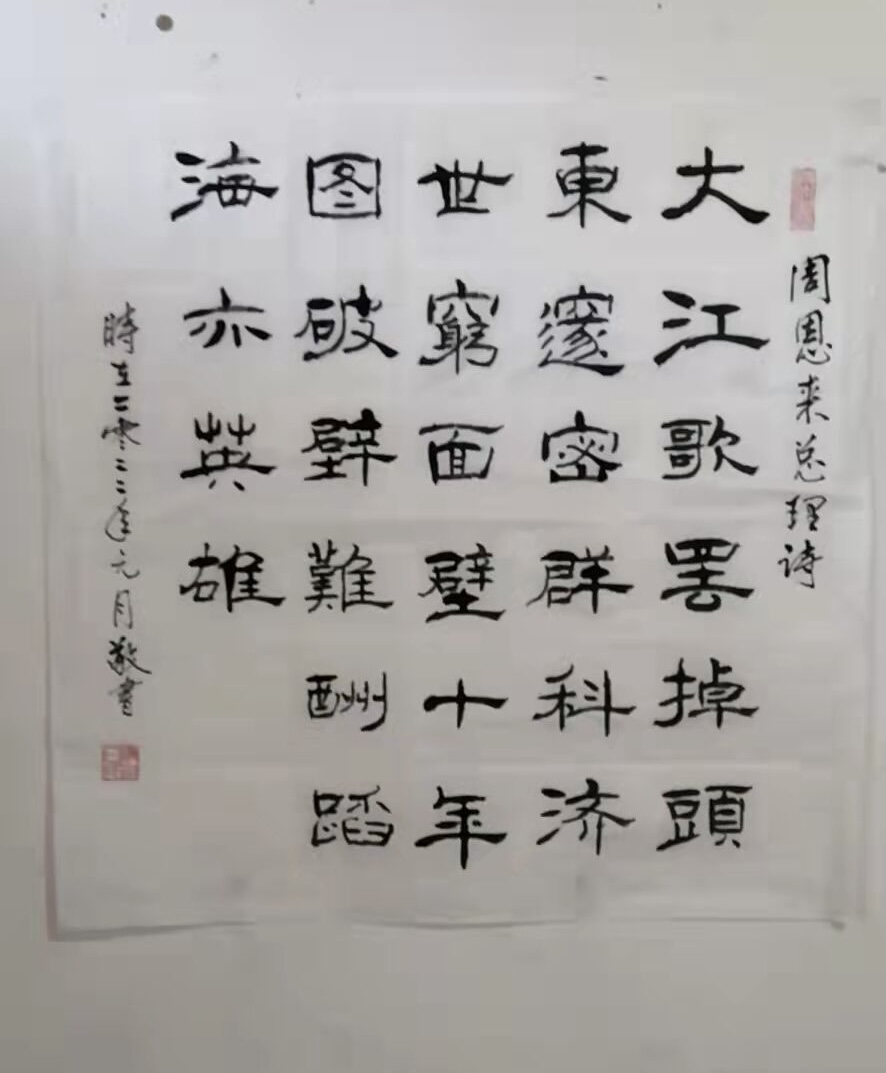 周恩来总理诗
大江歌罢掉頭
東邃密群科济
世窮面壁十年
图破壁難酬蹈
海亦英雄
時在二零二二年元月敬書